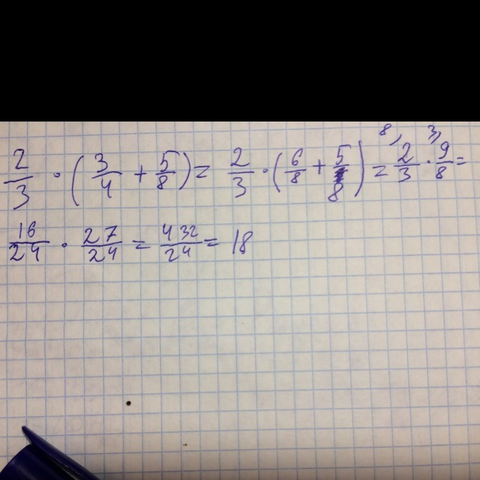 2/3 · (3/4 + 5/8) = 2/3 · (6/8 + 5/8) = 2/3 8, · 9/8 3, =
16/24 · 27/24 = 432/24 = 18